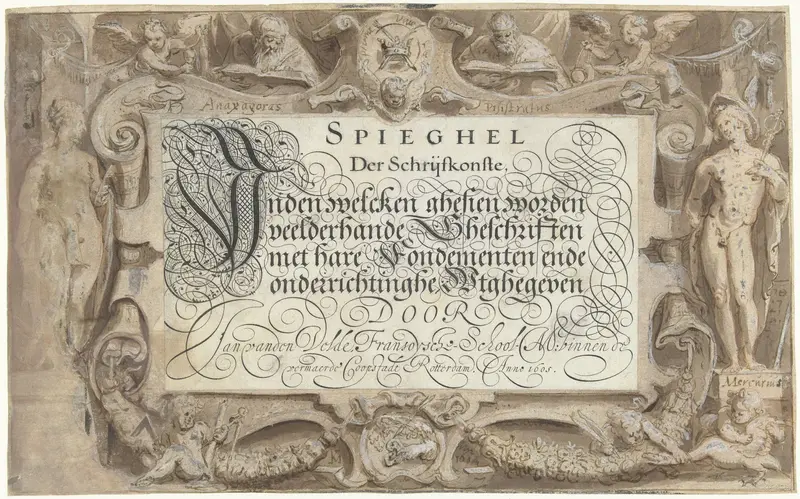 Anaxagoras
Pisistratus
SPIEGHEL
Der Schrijfkonste,
Inden welcken ghesien worden
veelderhande Gheschriften
met hare Fondementen ende
onderrichtinghe. Wtghegeven
DOOR
Jan vanden Velde, Fransoysche-School-M. binnen de
vermaerde Coopstadt Rotterdam. Anno 1605.
Mercurius